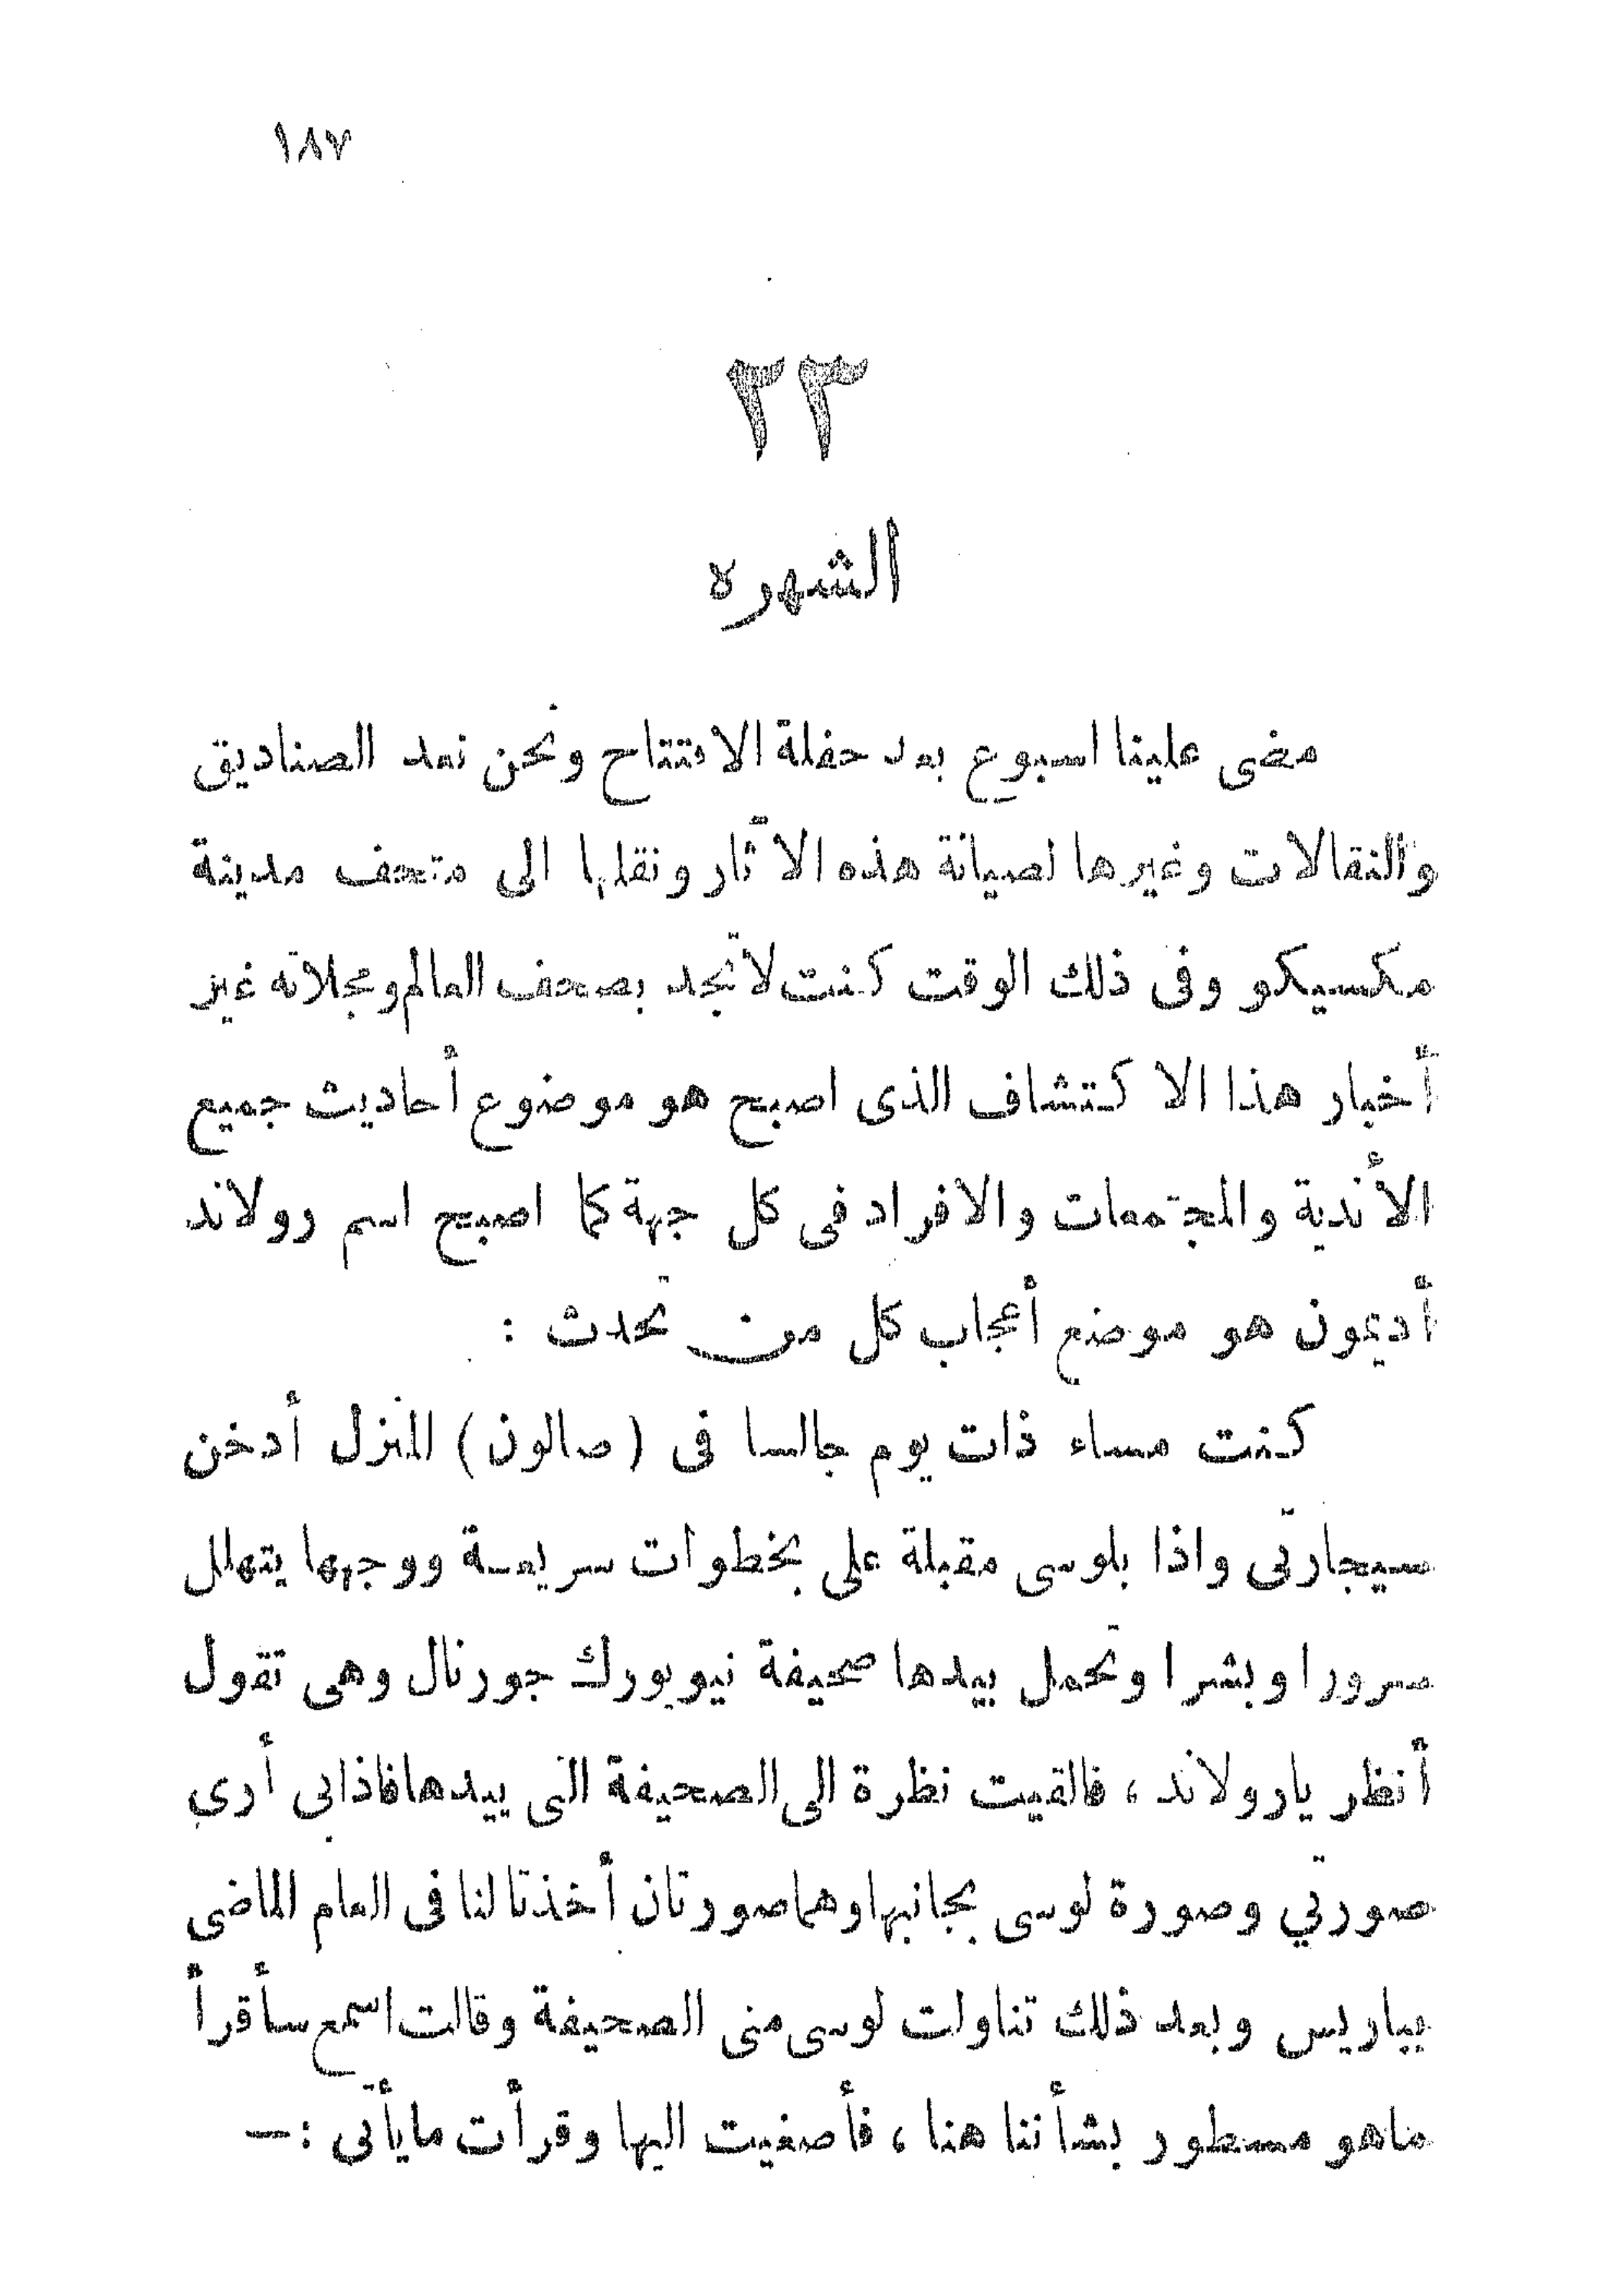 ١٨٧
٣٣
الشهره
مضى علينا اسبوع بعد حفلة الافتتاح ونحن نعد الصناديق
والنقالات وغيرها لصيانة هذه الآثار ونقلها الى متحف مدينة
مكسيكو وفى ذلك الوقت كنت لاتجد بصحف العالم ومجلاته غير
أخبار هذا الاكتشاف الذى اصبح هو موضوع أحاديث جميع
الأندية والمجتمعات والافراد فى كل جهة كما اصبح اسم رولاند
أديمون هو موضع أعجاب كل من تحدث :
كنت مساء ذات يوم جالسا فى ( صالون ) المنزل أدخن
سيجارتى واذا بلوسى مقبلة على بخطوات سريعة ووجهها يتهلل
سرورا وبشرا وتحمل بيدها صحيفة نيويورك جورنال وهى تقول
أنظر يارولاند ، فالقيت نظرة الى الصحيفة التى بيدها فاذابى أرى
صورتي وصورة لوسى بجانبها وهما صورتان أخذتا لنا فى العام الماضى
بباريس وبعد ذلك تناولت لوسى منى الصحيفة وقالت اسمع سأقرأ
ماهو مسطور بشأننا هنا ، فأصغيت اليها وقرأت مايأتى :—